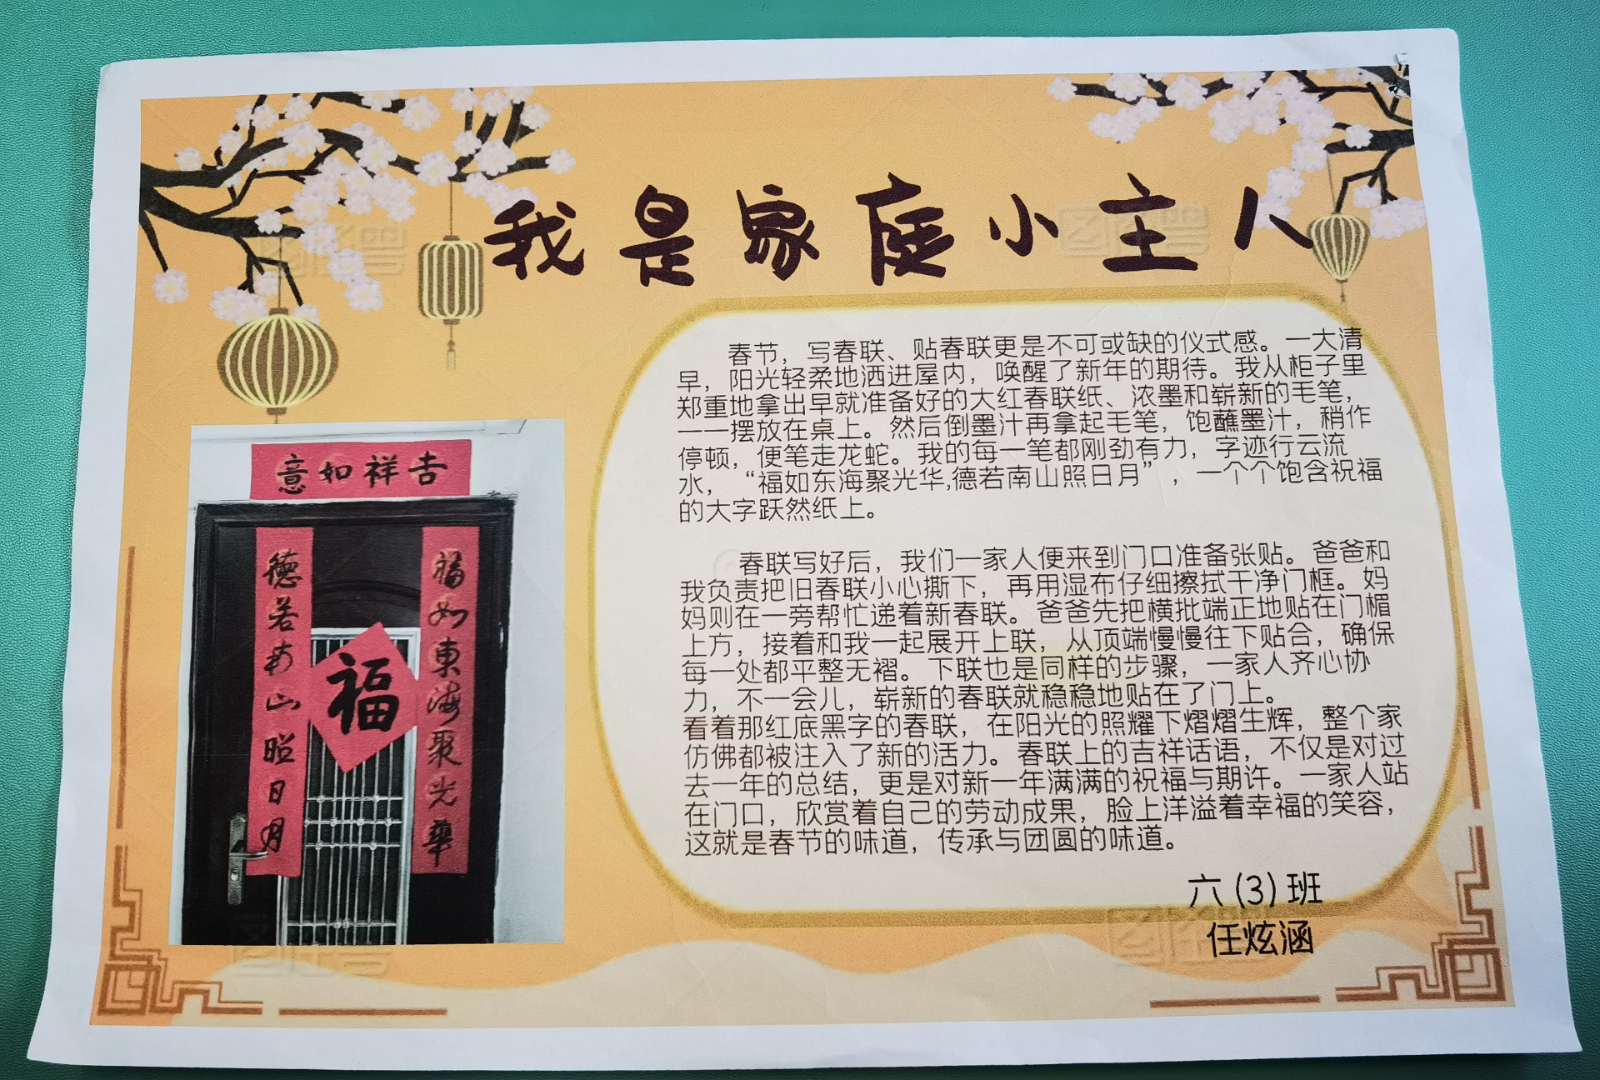 我是家庭小主人
春节，写春联、贴春联更是不可或缺的仪式感。一大清
早，阳光轻柔地洒进屋内，唤醒了新年的期待。我从柜子里
郑重地拿出早就准备好的大红春联纸、浓墨和崭新的毛笔，
一一摆放在桌上。然后倒墨汁再拿起毛笔，饱蘸墨汁，稍作
停顿，便笔走龙蛇。我的每一笔都刚劲有力，字迹行云流
水，“福如东海聚光华,德若南山照日月”，一个个饱含祝福
的大字跃然纸上。
春联写好后，我们一家人便来到门口准备张贴。爸爸和
我负责把旧春联小心撕下，再用湿布仔细擦拭干净门框。妈
妈则在一旁帮忙递着新春联。爸爸先把横批端正地贴在门楣
上方，接着和我一起展开上联，从顶端慢慢往下贴合，确保
每一处都平整无褶。下联也是同样的步骤，一家人齐心协
力，不一会儿，崭新的春联就稳稳地贴在了门上。
看着那红底黑字的春联，在阳光的照耀下熠熠生辉，整个家
仿佛都被注入了新的活力。春联上的吉祥话语，不仅是对过
去一年的总结，更是对新一年满满的祝福与期许。一家人站
在门口，欣赏着自己的劳动成果，脸上洋溢着幸福的笑容，
这就是春节的味道，传承与团圆的味道。
六(3)班
任炫涵
意如祥吉
福如東海聚光華
德若南山照日月
福